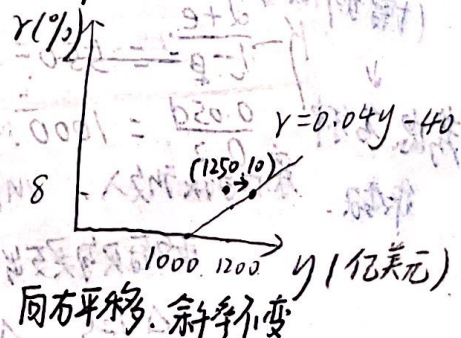 r(%)
r=0.04y-40
(1250,10)
8
1000 1200 y(亿美元)
向右平移.斜率不变